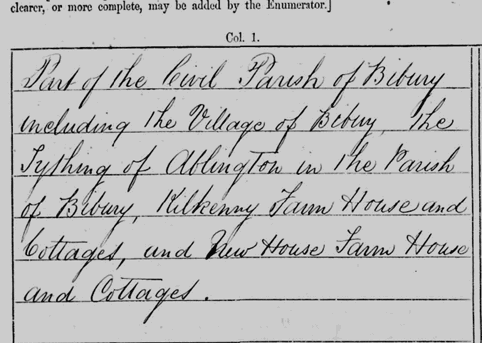 clearer, or more complete, may be added by the Enumerator.]
Col. 1.
Part of the Civil Parish of Bibury
including the Village of Bibury, the
Tything of Ablington in the Parish
of Bibury, Kilkenny Farm House and
Cottages, and New House Farm House
and Cottages.